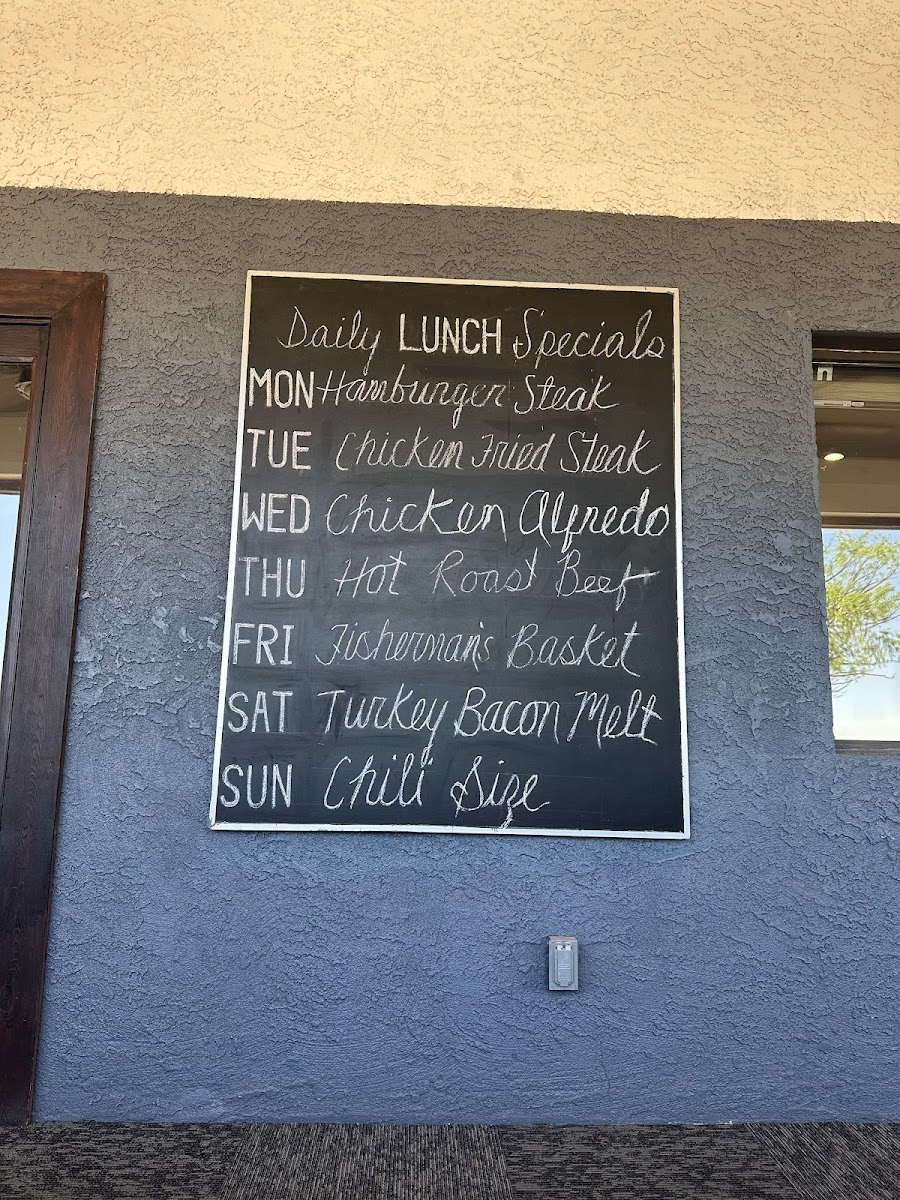 Daily LUNCH Specials
MON Hamburger Steak
TUE Chicken Fried Steak
WED Chicken Alfredo
THU Hot Roast Beef
FRI Fisherman's Basket
SAT Turkey Bacon Melt
SUN Chili Size